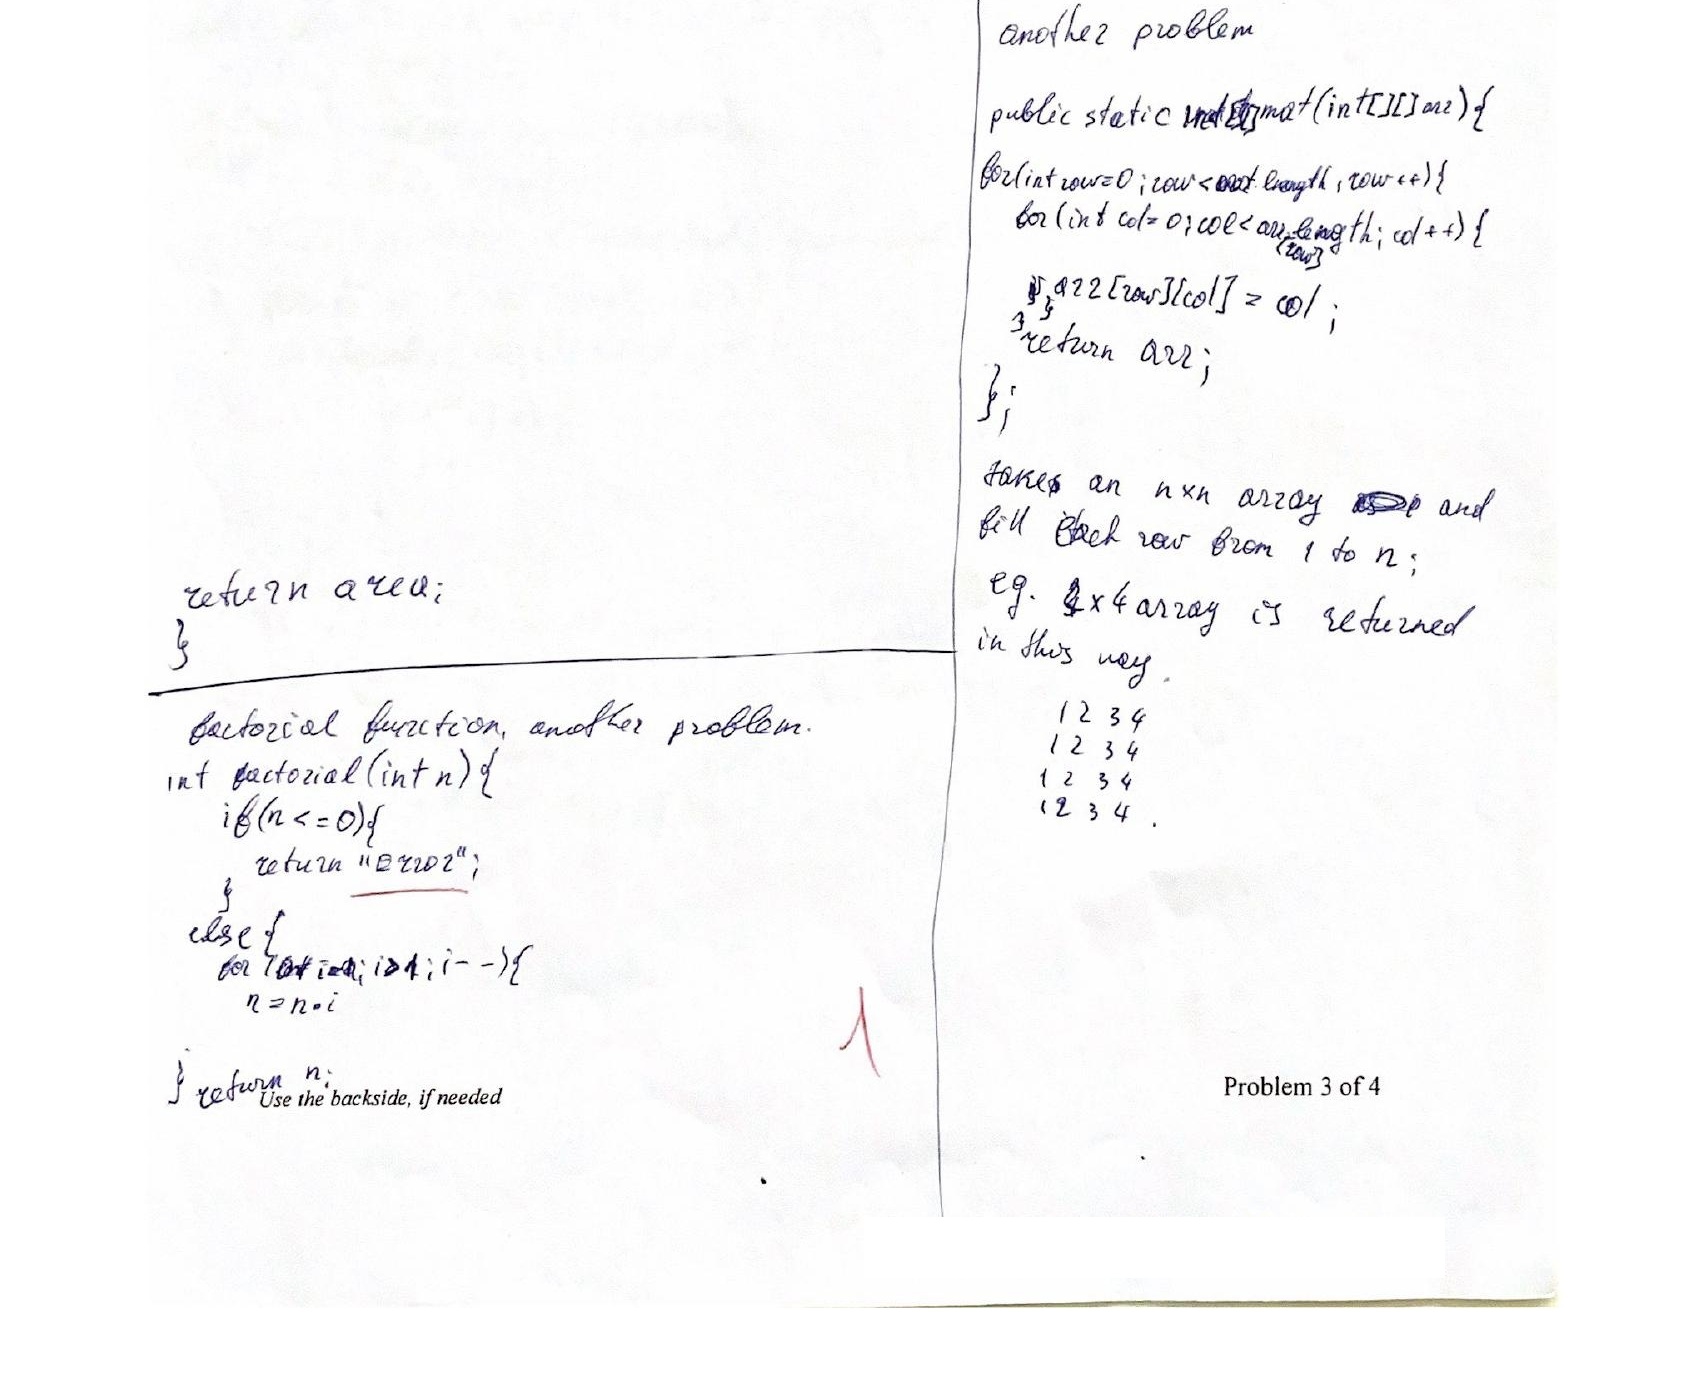 return area;
}
factorial function, another problem.
int factorial(int n){
if(n<=0){
return "error";
}
else {
for (int i=n; i>1; i--){
n=n•i
} return n;
Use the backside, if needed
1
another problem
public static int[][] mat(int[][] arr){
for(int row=0; row<arr.length; row++){
for(int col=0; col<arr[row].length; col++){
arr[row][col]=col;
}
}
return arr;
};
takes an n×n array and
fill each row from 1 to n;
eg. 4×4 array is returned
in this way.
1 2 3 4
1 2 3 4
1 2 3 4
1 2 3 4.
Problem 3 of 4